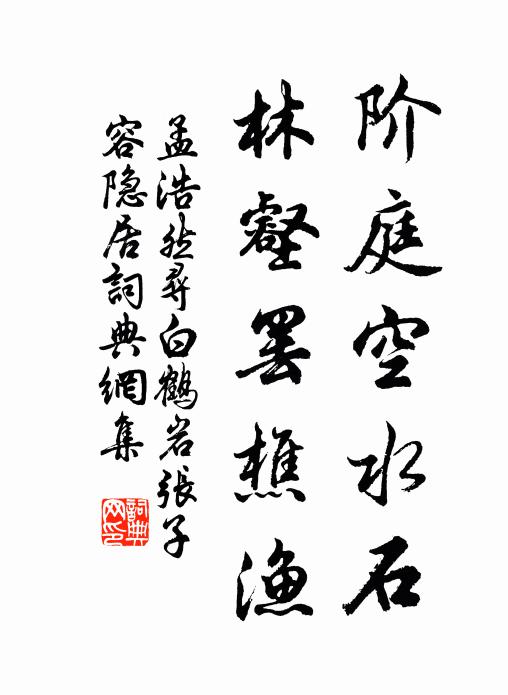 阶庭空水石
林壑罢樵渔
孟浩然寻白鹤岩張子
容隐居詞典網集
詞典
网印